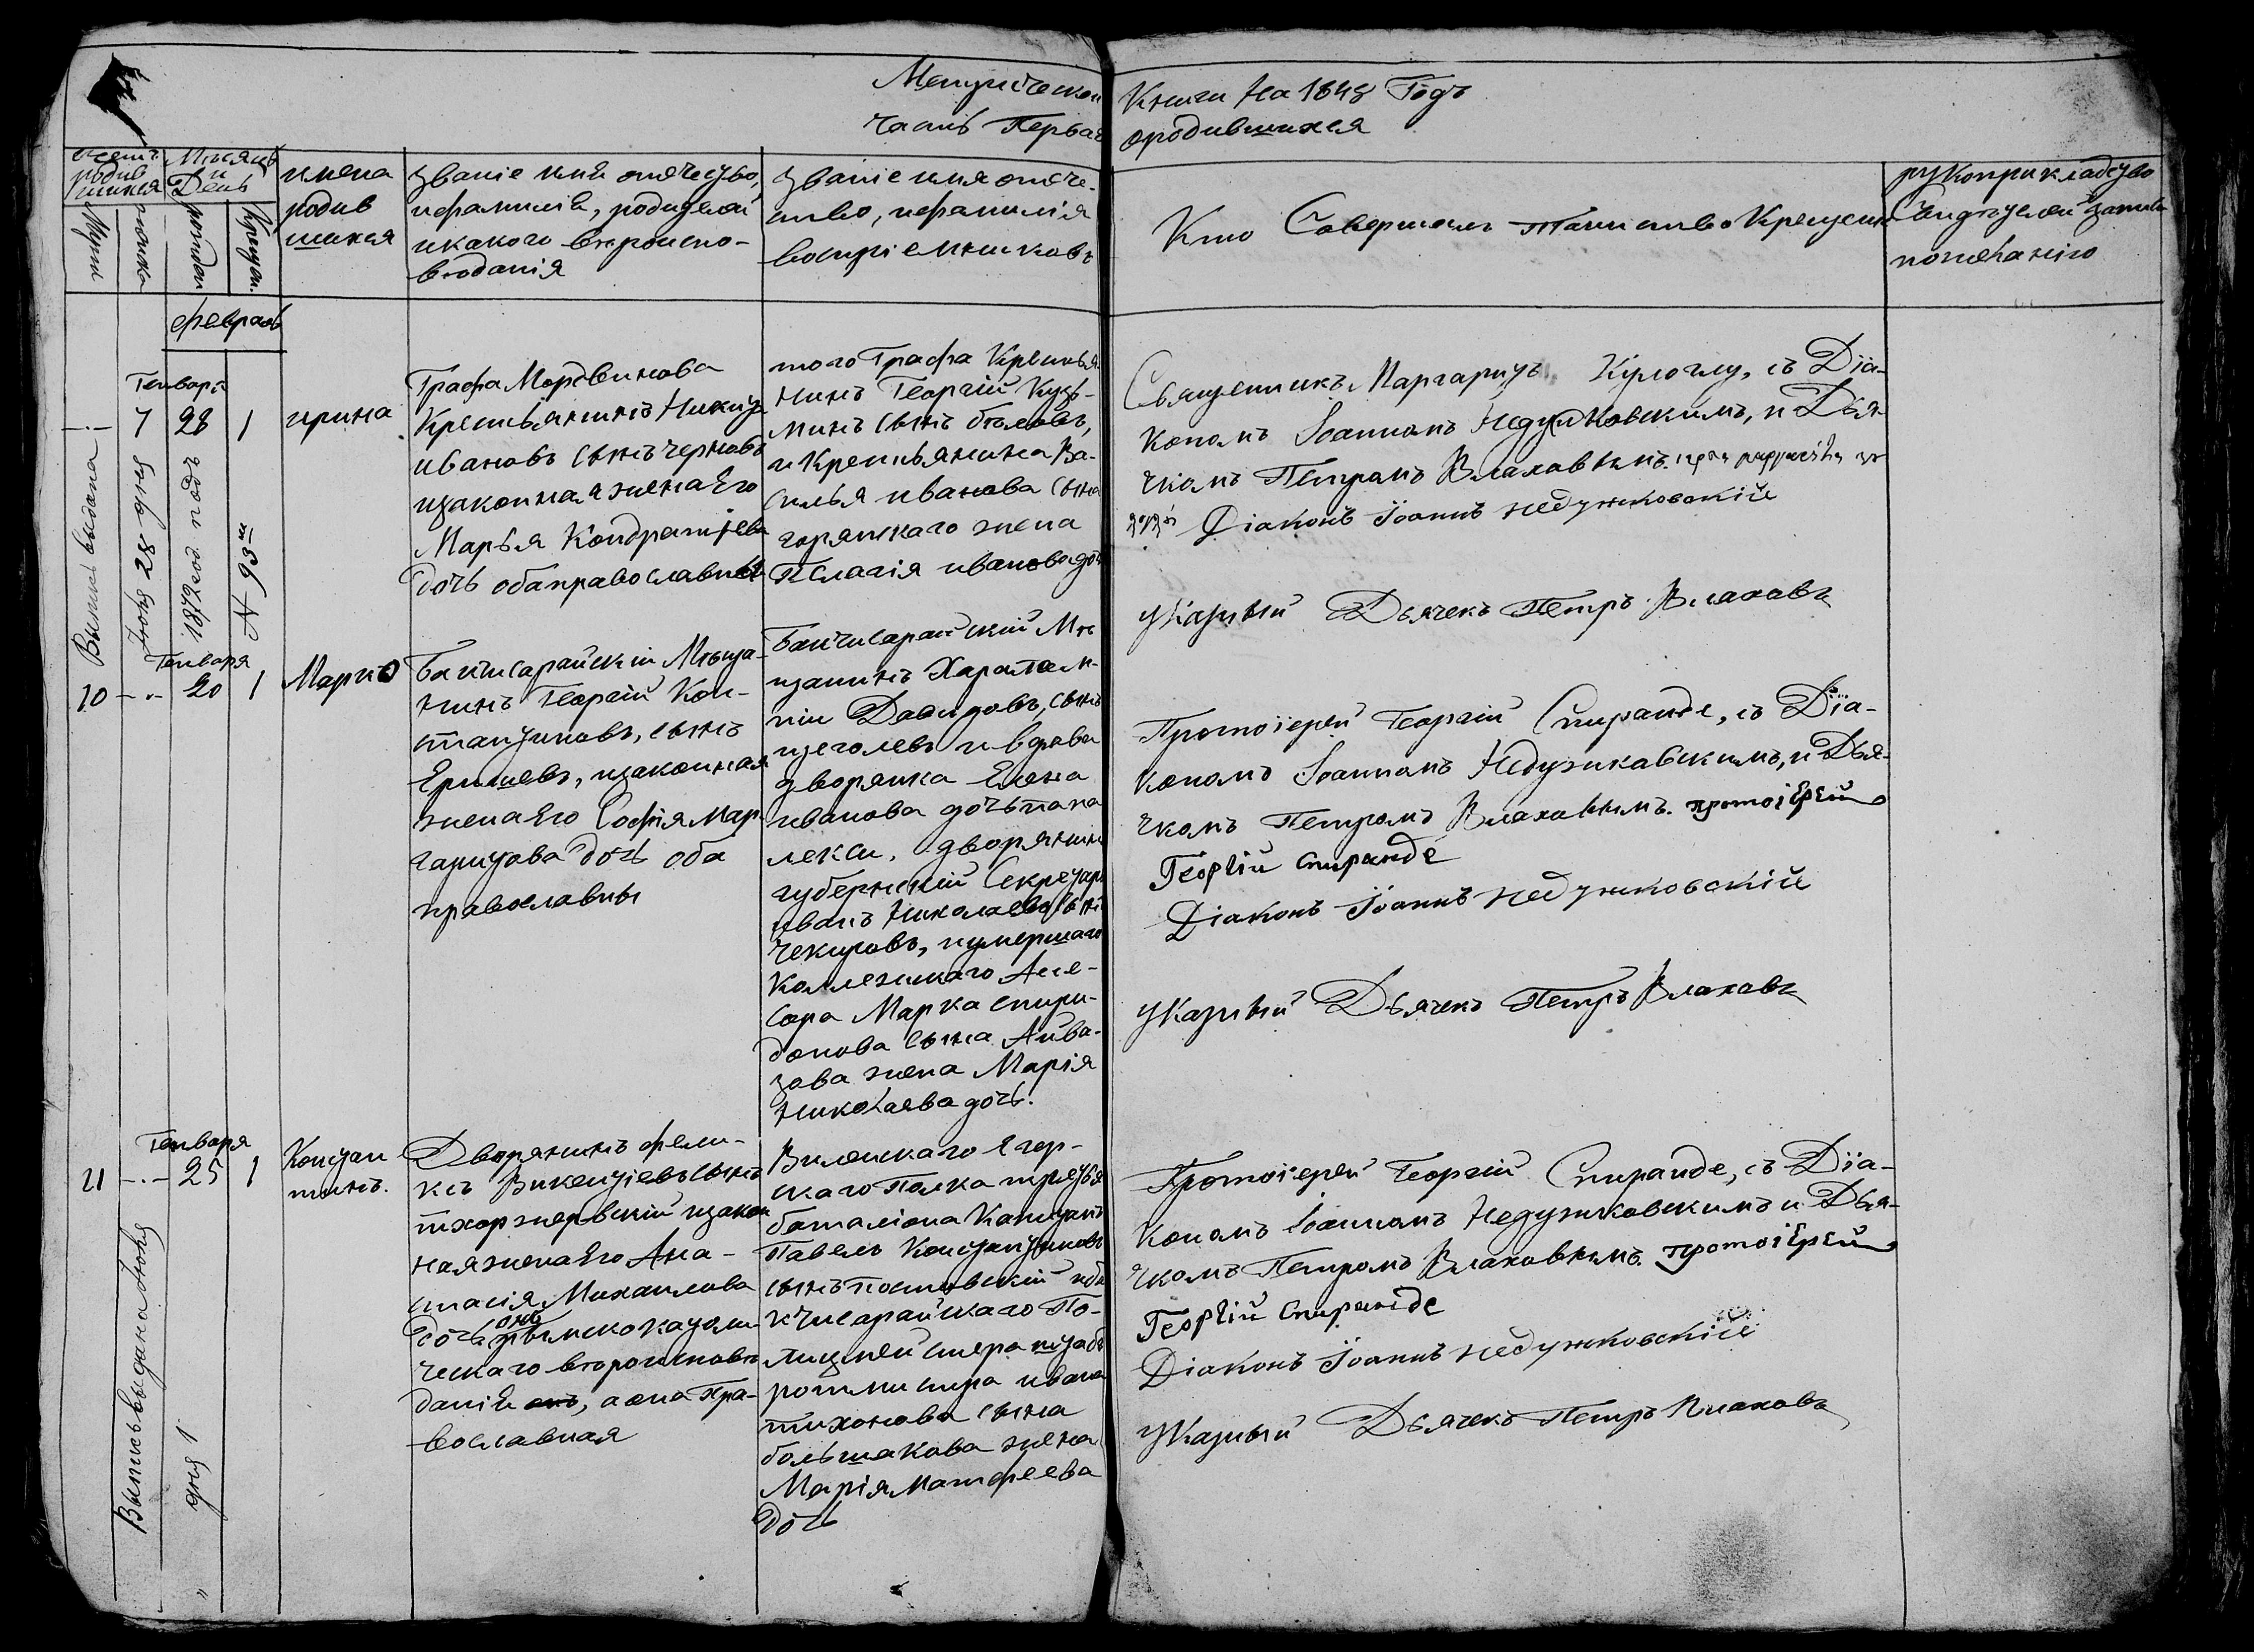 Метрической
часть Первая
Книги На 1848 Годъ
ородившихся
счетъ родив шихся
Мѣсяцъ и День
имена родив шихся
званіе имя отечество,
ифамилія, родителей
икакого вѣроиспо-
вѣданія
званіе имя отече-
ство, ифамилія
воспріемниковъ
Кто Совершалъ Таинство Крещенія
рукоприкладство
Свидѣтелей записи
пожеланію
февраль
Генваря
7 28 1
ирина
Графа Мордвинова
Крестьянинъ Никита
ивановъ сынъ черновъ
изаконная жена Его
Марья Кондратьева
дочь обаправославны
того Графа Крестья
нинъ Георгій Кузь-
минъ сынъ бѣловъ,
и Крестьянина Ва-
силья иванова сына
горянскаго жена
Пелагія иванова дочь
Священникъ Маргаритъ Кулоглу, съ Діа-
кономъ Іоанномъ Недужковскимъ, и Дья-
чкомъ Петромъ Влаховымъ.
Діаконъ Іоаннъ недужковскій
указный Дьячекъ Петръ Влаховъ
Выпись выдана
Іюня 28 дня
1872 год подъ
N 93м
Генваря
10 - „ - 20 1
Марко
Бакчисарайскій Мѣща-
нинъ Георгій Кон-
стантиновъ, сынъ
Ерышевъ, изаконная
жена Его Софія Мар-
гаритова дочь оба
православны
Бакчисарайскій Мѣ
щанинъ Харалам-
пій Давидовъ, сынъ
щеголевъ и вдова
дворянка Елена
иванова дочь папа
лекси, дворянинъ
губернскій Секретарь
иванъ Николаевъ сынъ
Чекировъ, иумершаго
Коллежскаго Ассе-
сора Марка спири-
донова сына Айва-
зова жена Марія
Николаева дочь.
Протоіерей Георгій Спиранде, съ Діа-
кономъ Іоанномъ Недужикавскимъ, и Дья-
чкомъ Петромъ Влаховымъ. протоіерей
Георгій Спиранде
Діаконъ Іоаннъ недужковскій
указный Дьячекъ Петръ Влаховъ
Генваря
11 - „ - 25 1
Констан
тинъ.
Дворянинъ фели-
ксъ Викентіевъ сынъ
тхоржевскій изакон
ная жена Его Ана-
стасія Михаилова
дочь онъ римскокатоли
ческаго вѣроисповѣ
данія онъ, а она Пра-
вославная
Виленскаго Егер-
скаго Полка третья
баталіона Капитанъ
Павелъ Константиновъ
сынъ постовскій иба
кчисарайскаго По-
лицмейстера штабъ
ротмистра ивана
тихонова сына
большакова жена
Марія Матфеева
дочь
Протоіерей Георгій Спиранде, съ Діа-
кономъ Іоанномъ Недужковскимъ и Дья-
чкомъ Петромъ Влаховымъ. протоіерей
Георгій Спиранде
Діаконъ Іоаннъ недужковскій
указный Дьячекъ Петръ Влаховъ
Выпись выдана Іюня
дня 1